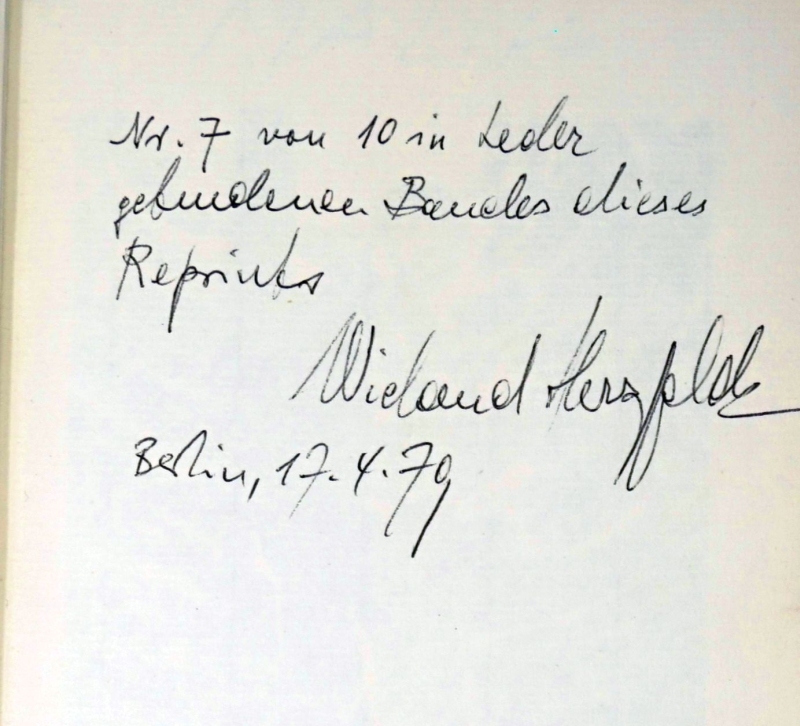 Nr. 7 von 10 in Leder
gebundenen Bandes dieses
Reprints
Wieland Herzfelde
Berlin, 17.4.79